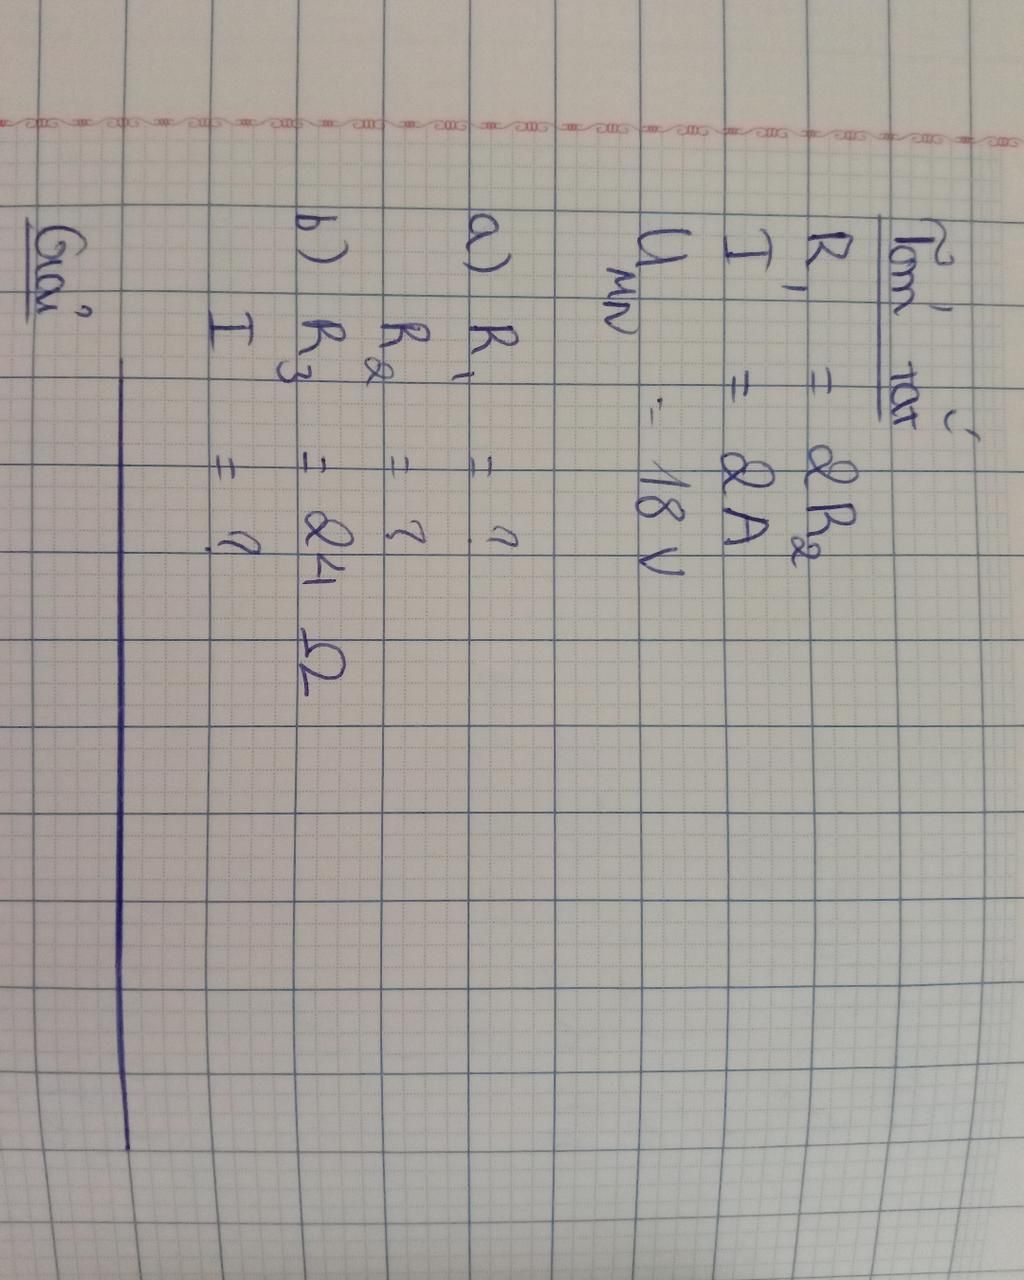 Tóm tắt
R₁ = 2R₂
I = 2A
U_MN = 18 V
a) R₁ = ?
R₂ = ?
b) R₃ = 24 Ω
I = ?
Giải